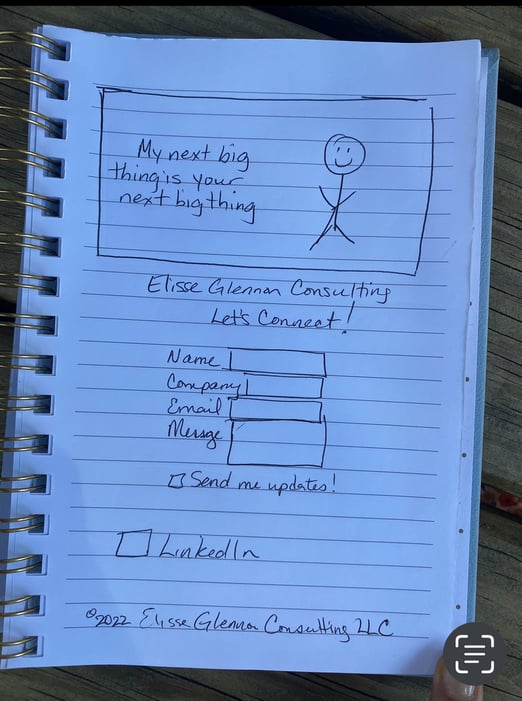 My next big
thing is your
next big thing
Elisse Glennon Consulting
Let's Connect!
Name
Company
Email
Messge
Send me updates!
LinkedIn
©2022 Elisse Glennon Consulting LLC